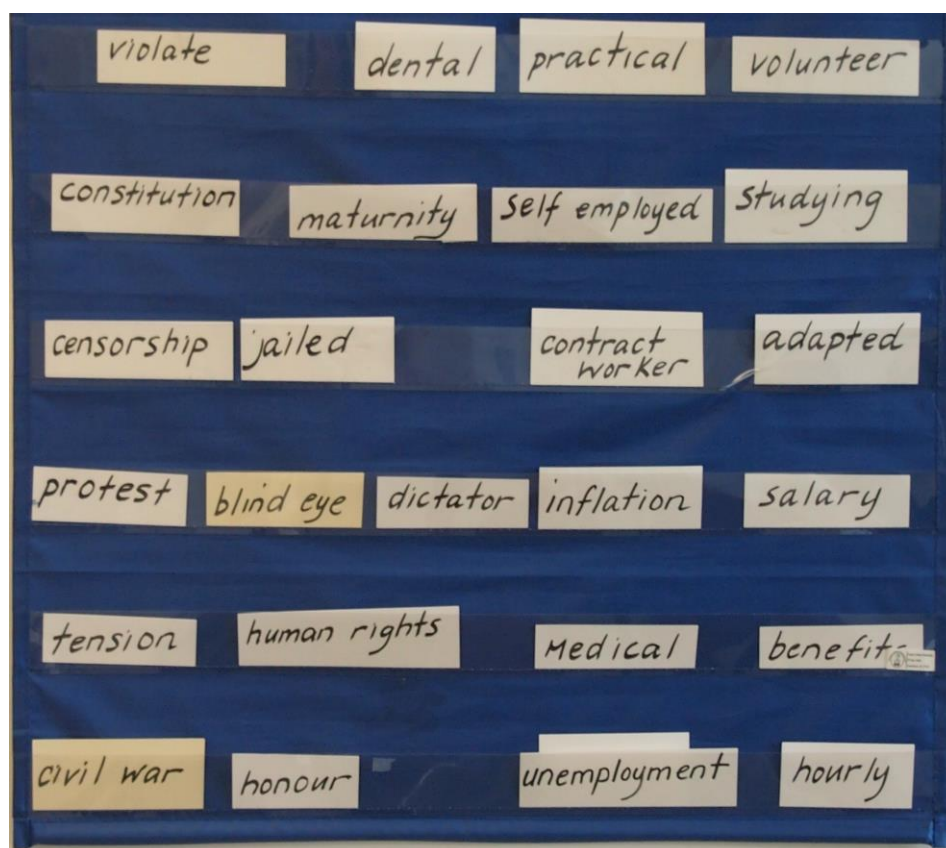 violate dental practical volunteer
constitution maturnity self employed studying
censorship jailed contract worker adapted
protest blind eye dictator inflation salary
tension human rights Medical benefits
civil war honour unemployment hourly